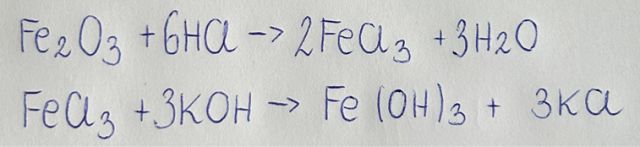 Fe₂O₃ + 6HCl → 2FeCl₃ + 3H₂O
FeCl₃ + 3KOH → Fe(OH)₃ + 3KCl